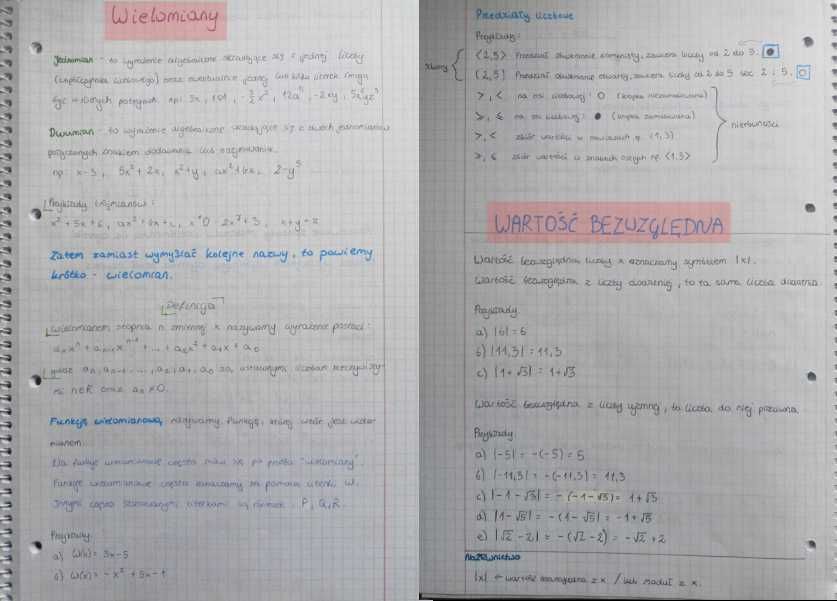 Wielomiany
Jednomian - to wyrażenie algebraiczne składające się z jednej liczby
(współczynnika liczbowego) oraz ewentualnie jednej lub kilku literek (mogą
być w różnych potęgach np: 5x, 101, -3/2 x², 12a¹⁵, -2xy,
Dwumian - to wyrażenie algebraiczne składające się z dwóch jednomianów
połączonych znakiem dodawania lub odejmowania.
np: x-3, 5x²+2x, x²+y, ax²+bx, 2-y⁵
Przykłady trójmianów:
x²+5x+6, ax²+bx+c, x¹⁰-2x⁷+3, x+y-z
Zatem zamiast wymyślać kolejne nazwy, to powiemy
krótko - wielomian.
Definicja
Wielomianem stopnia n zmiennej x nazywamy wyrażenie postaci:
aₙxⁿ + aₙ₋₁xⁿ⁻¹ + ... + a₂x² + a₁x + a₀
gdzie aₙ, aₙ₋₁, ..., a₂, a₁, a₀ są ustalonymi liczbami rzeczywisty-
mi n∈R oraz aₙ≠0.
Funkcją wielomianową nazywamy funkcję, której wzór jest wielo-
mianem.
Na funkcje wielomianowe często mówi się po prostu "wielomiany".
Funkcje wielomianowe często oznaczamy za pomocą literki W.
Innymi często stosowanymi literkami są również: P, Q, R.
Przykłady:
a) W(x) = 3x-5
b) W(x) = -x²+5x-1
Przedziały liczbowe
Przykłady:
zbiory
⟨2,5⟩ Przedział obustronnie domknięty, zawiera liczby od 2 do 5.
(2,5) Przedział obustronnie otwarty, zawiera liczby od 2 do 5 bez 2 i 5.
>, < na osi liczbowej: ○ (kropka niezamalowana)
≥, ≤ na osi liczbowej: ● (kropka zamalowana)
>, < zbiór wartości w nawiasach np. (1,3)
≥, ≤ zbiór wartości w znakach ostrych np. ⟨1,3⟩
nierówności
WARTOŚĆ BEZWZGLĘDNA
Wartość bezwzględną liczby x oznaczamy symbolem |x|.
Wartość bezwzględna z liczby dodatniej, to ta sama liczba dodatnia.
Przykłady:
a) |6| = 6
b) |11,3| = 11,3
c) |1+√3| = 1+√3
Wartość bezwzględna z liczby ujemnej, to liczba do niej przeciwna.
Przykłady:
a) |-5| = -(-5) = 5
b) |-11,3| = -(-11,3) = 11,3
c) |-1-√3| = -(-1-√3) = 1+√3
d) |1-√5| = -(1-√5) = -1+√5
e) |√2-2| = -(√2-2) = -√2+2
Nazewnictwo
|x| ← wartość bezwzględna z x / lub moduł z x.